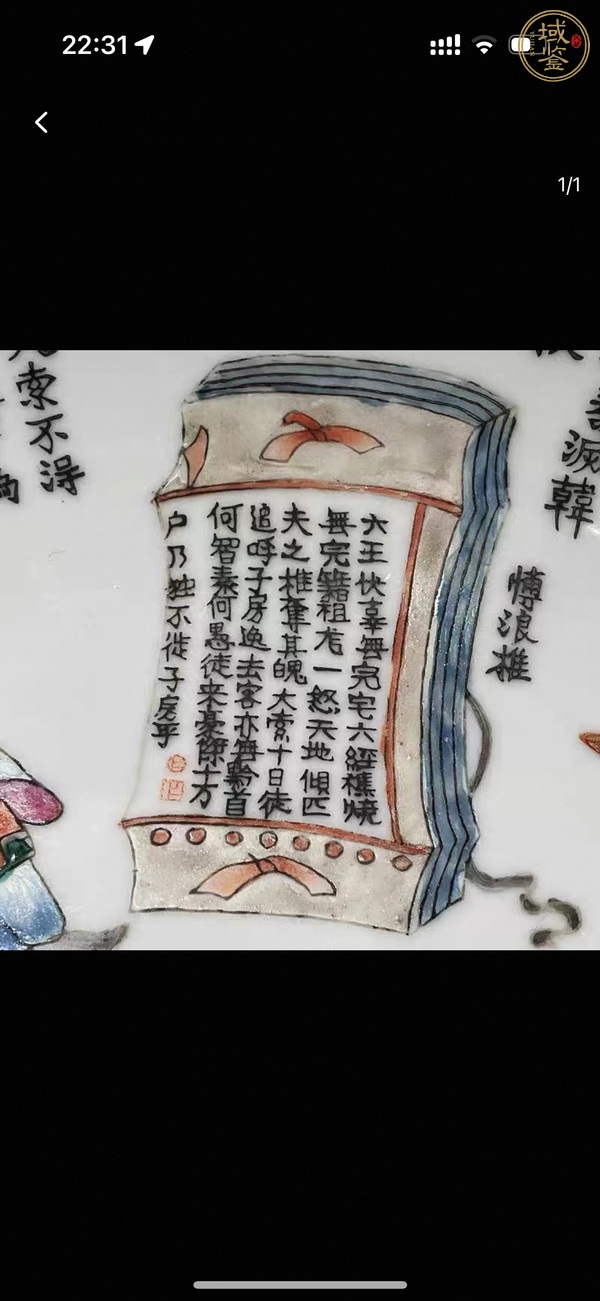 22:31
域鉴
1/1
滅韓
愽浪推
六王伏辜無完宅六經樵燒
無完籍祖龙一怒天地傾匹
夫之推奪其魄大索十日徒
追呼子房逸去客亦無輪首
何智秦何愚徒来豪傑士方
户乃独不徙子房乎
索不淂